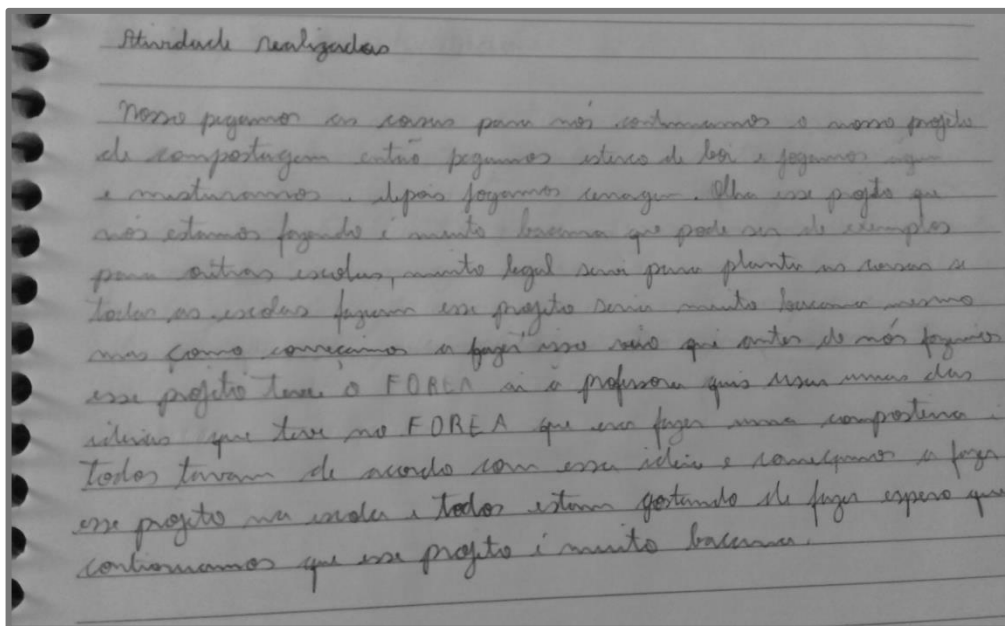 Atividade realizadas
Nosso pegamos as coisas para nós continuamos o nosso projeto
de compostagem então pegamos esterco de boi e jogamos água
e misturamos, depois jogamos serragem. Olha esse projeto que
nós estamos fazendo é muito bacana que pode ser de exemplos
para outras escolas, muito legal seria para planta as coisas se
todas as escolas fazerem esse projeto seria muito bacana mesmo
mas como começamos a fazer isso que antes de nós fazemos
esse projeto teve o FOREA ai a professora quis usar umas das
ideias que teve no FOREA que era fazer uma composteira e
todos tavam de acordo com essa ideia e começamos a fazer
esse projeto na escola e todos estam gostando de fazer espero que
continuamos que esse projeto é muito bacana.